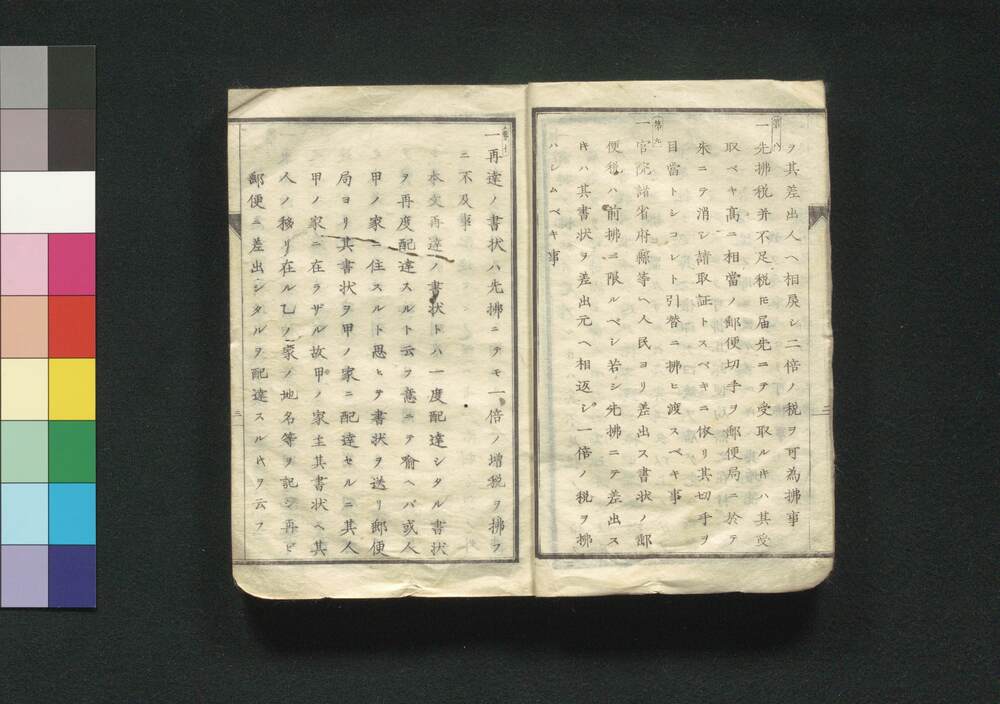 ヲ其差出人ヘ相戻シ二倍ノ税ヲ可為拂事
第八
一先拂税并不足税𪜈届先ニテ受取ルキハ其受
取ベキ髙ニ相當ノ郵便切手ヲ郵便局ニ於テ
朱ニテ消シ請取証トスベキニ依リ其切手ヲ
目當トシコレト引替ニ拂ヒ渡スベキ事
第九
一官院諸省府縣等ヘ人民ヨリ差出ス書状ノ郵
便税ハ前拂ニ限ルベシ若シ先拂ニテ差出ス
キハ其書状ヲ差出元ヘ相返シ一倍ノ税ヲ拂
ハシムベキ事
三
第十
一再達ノ書状ハ先拂ニテモ一倍ノ增税ヲ拂フ
ニ不及事
本文再達ノ書状トハ一度配達シタル書状
ヲ再度配達スルト云フ意ニテ喩ヘバ或人
甲ノ家ニ住スルト思ヒテ書状ヲ送リ郵便
局ヨリ其書状ヲ甲ノ家ニ配達セルニ其人
甲ノ家ニ在ラザル故甲ノ家主其書状ヘ其
人ノ移リ在ル乙ノ家ノ地名等ヲ記シ再ビ
郵便ニ差出シタルヲ配達スルキヲ云フ
三